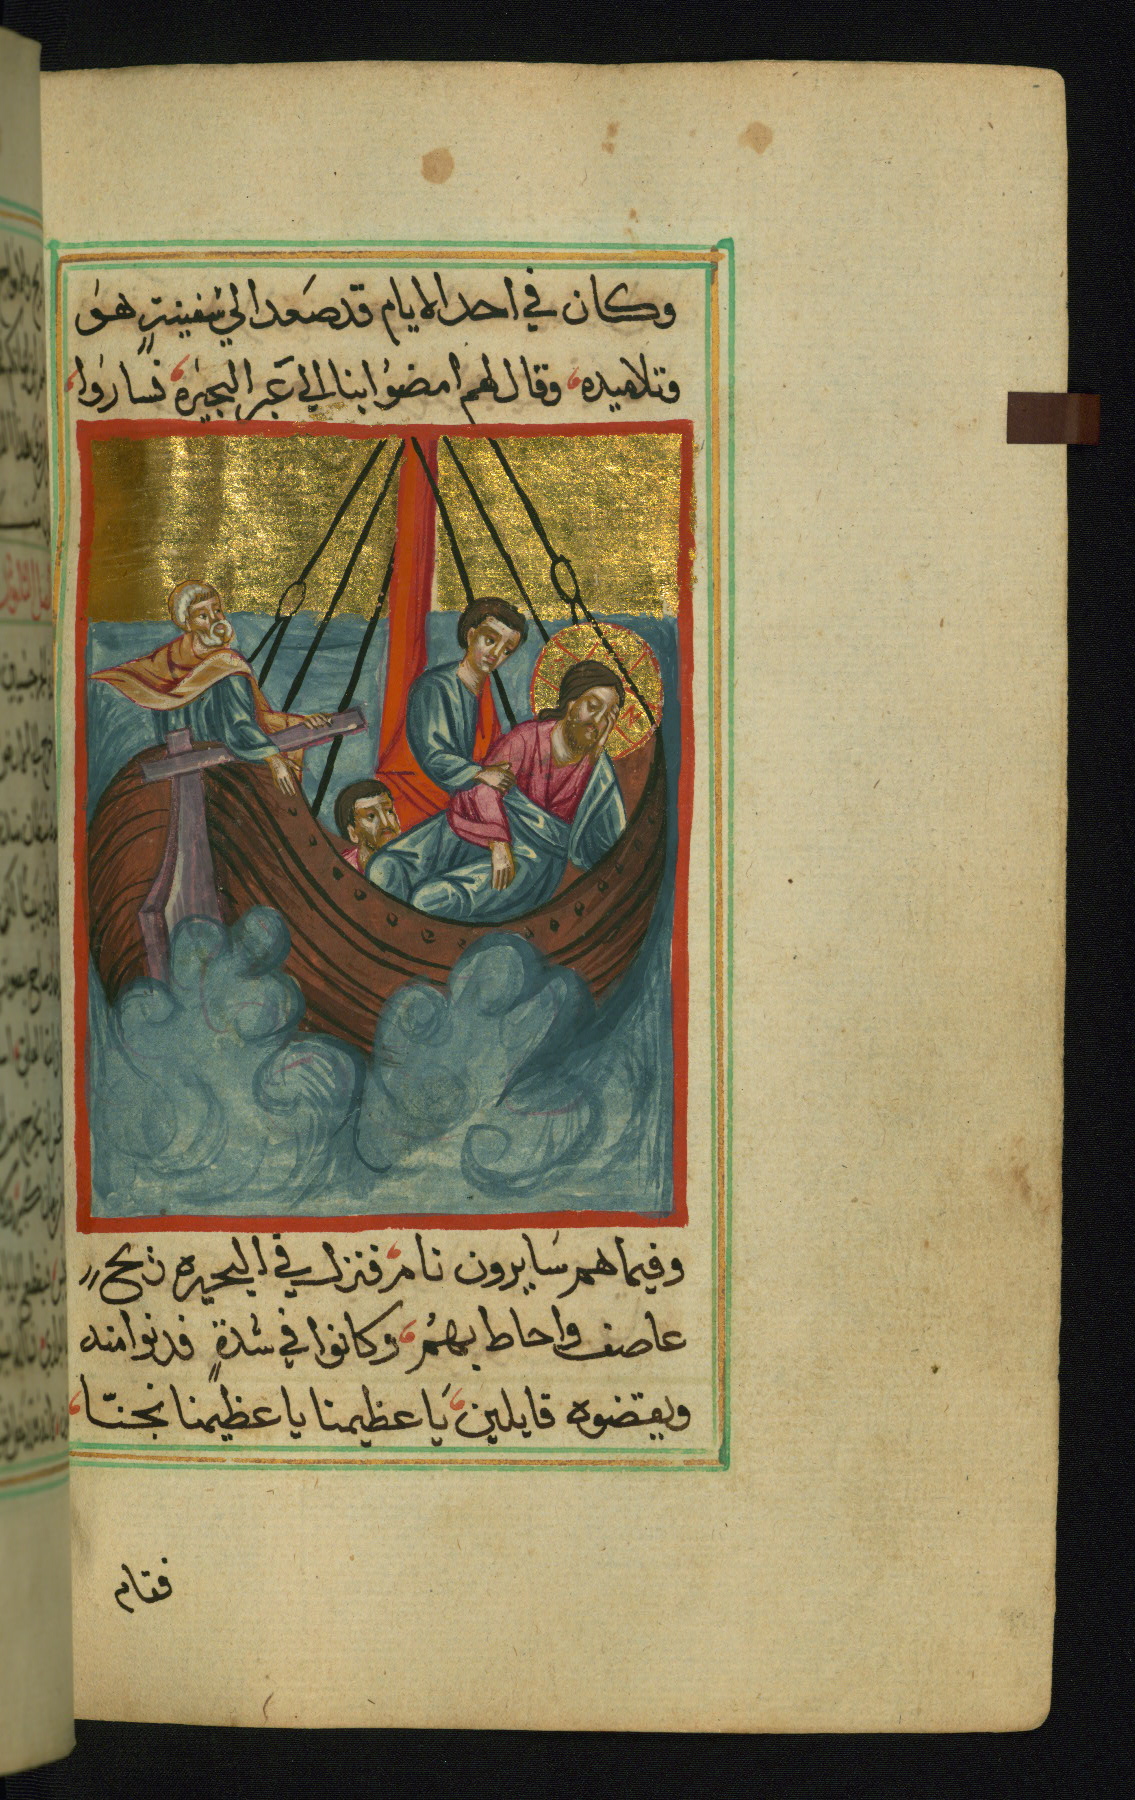 وكان في احد الايام قد صَعد الي سُفينةٍ هوَ
وتلاميده، وقال لهم امضوُا بنا الي عَبر البحيرَه، فسَاروَا،
وفيما هم سَايرون نام، فنزل في البحيره ريح
عاصف واحاط بهمُ، وكانوا في شدةٍ فدنوا منه
ويقضوه قايلين، يَا عظيمنا يا عظيمنا نجنّا،
فقام